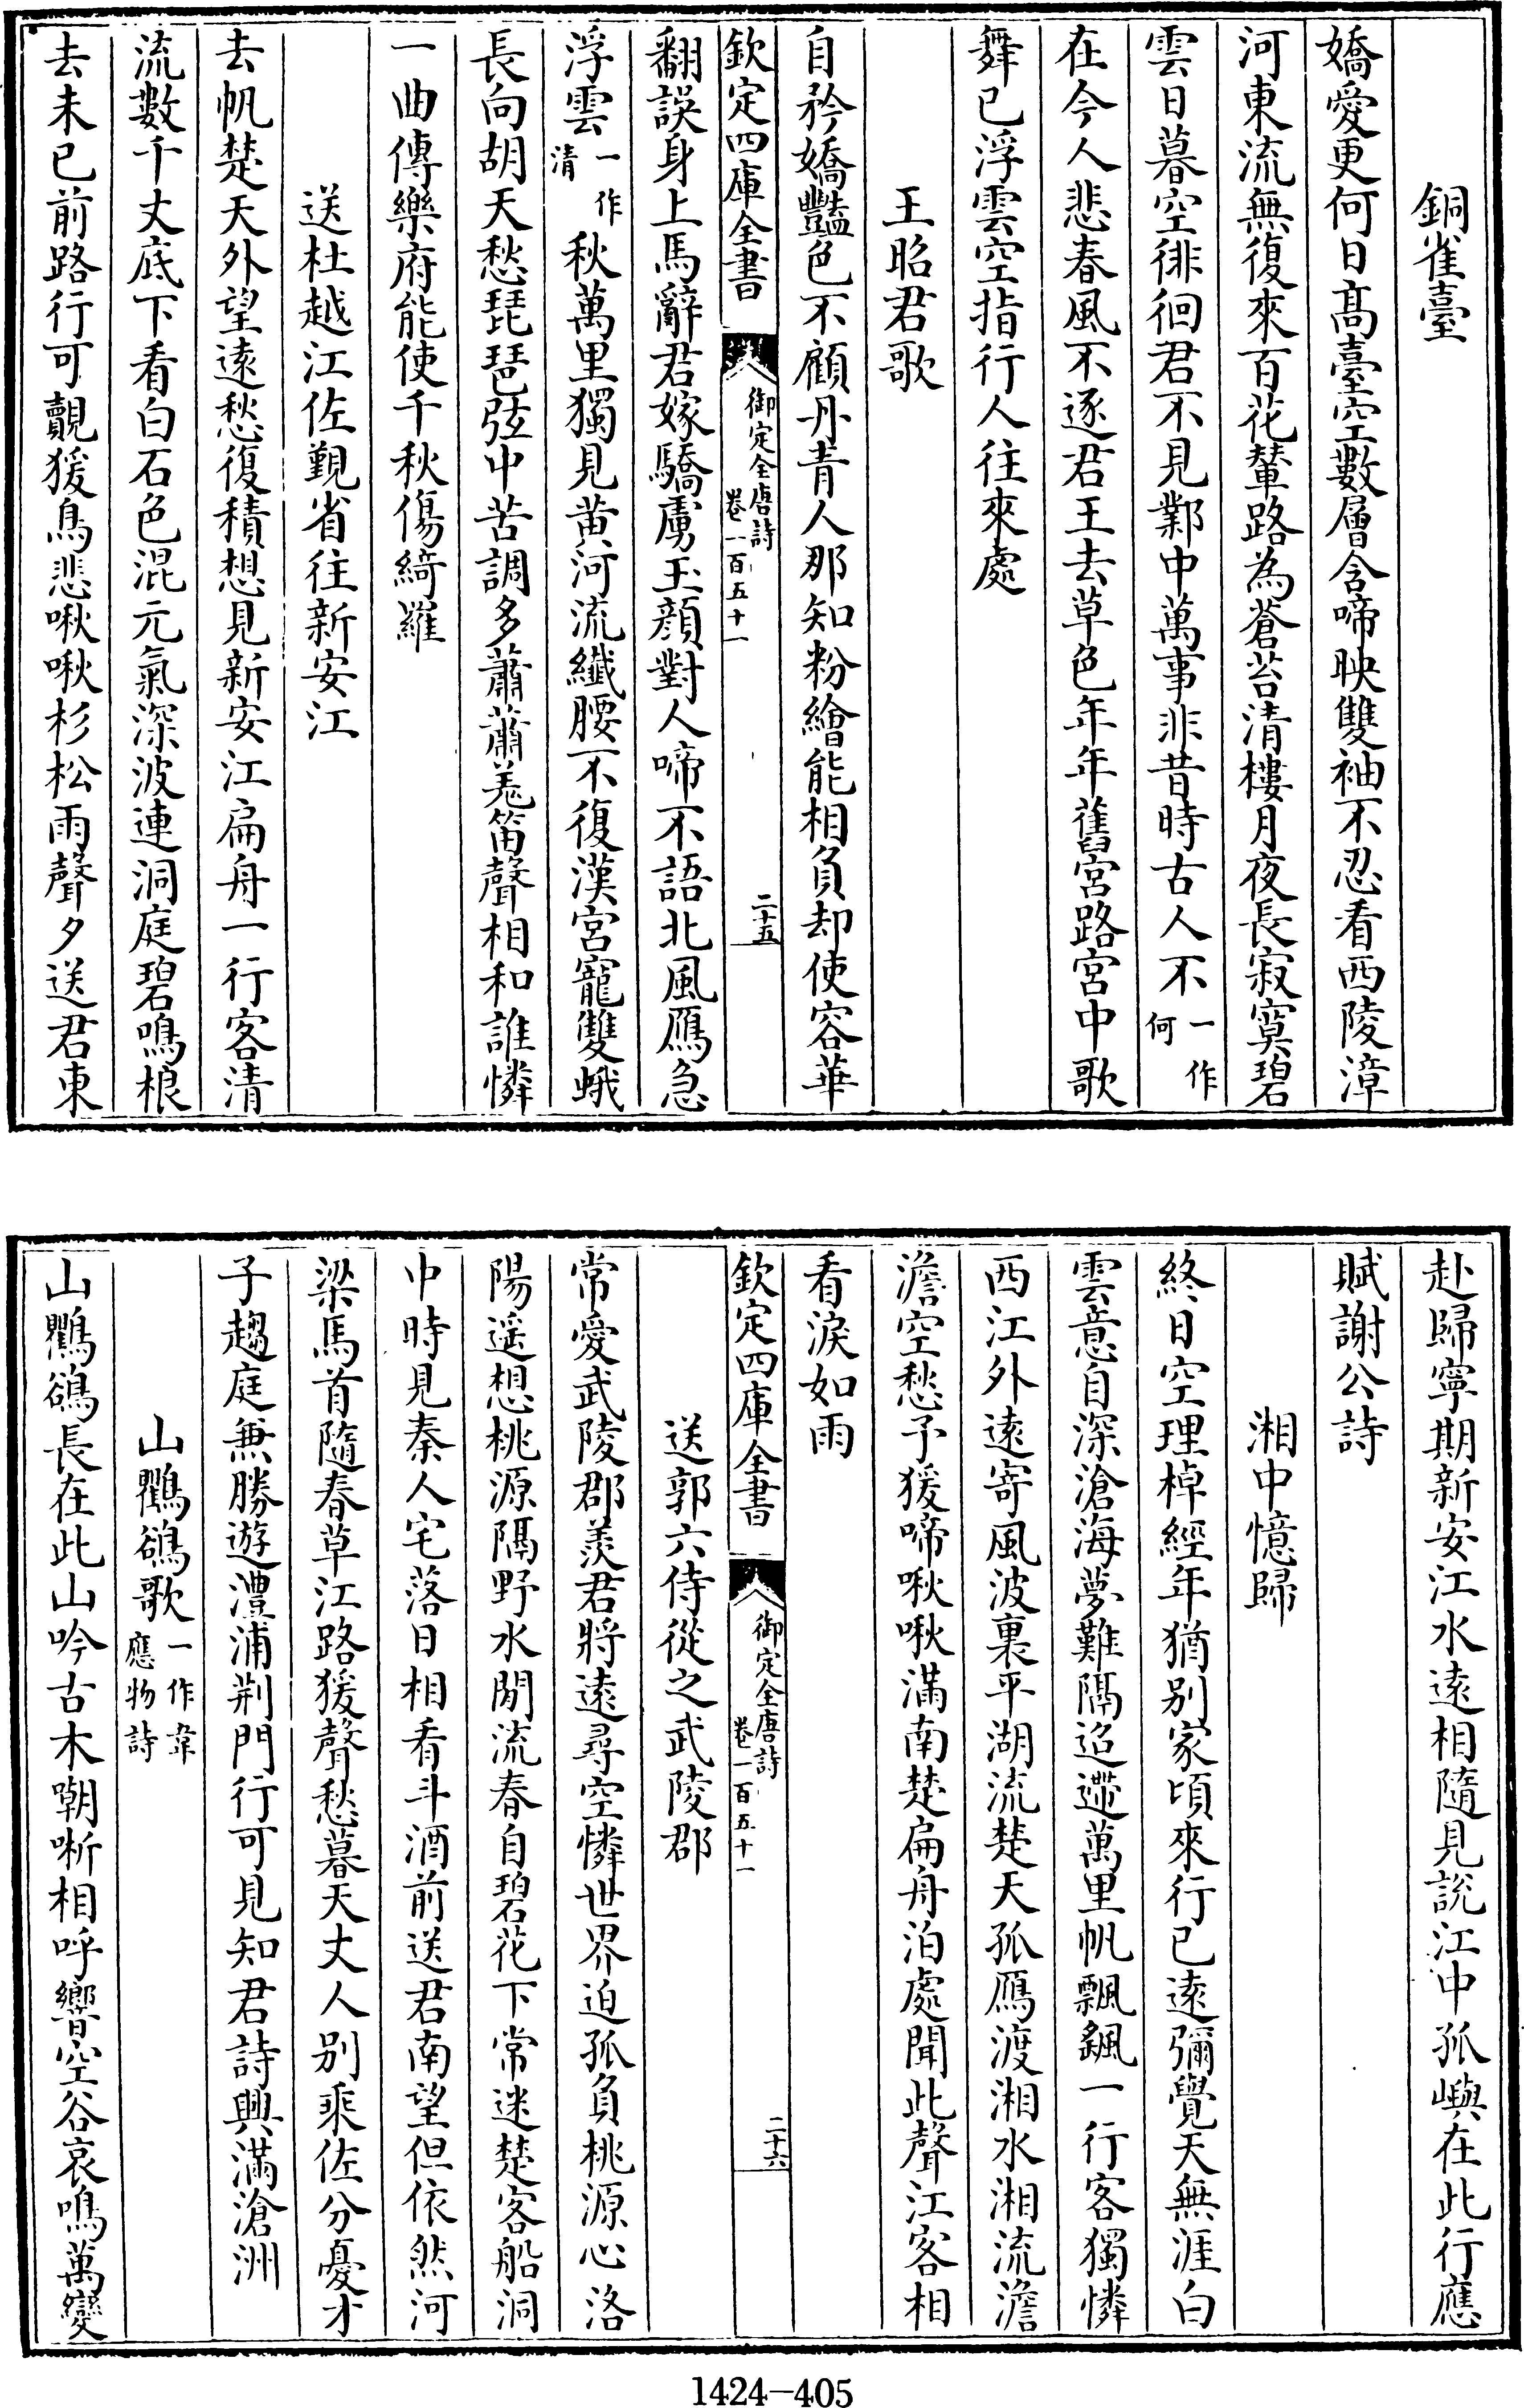 銅雀臺
嬌愛更何日髙臺空數層含啼映雙袖不忍看西陵漳
河東流無復來百花輦路為蒼苔清樓月夜長寂寞碧
雲日暮空徘徊君不見鄴中萬事非昔時古人不一作何
在今人悲春風不逐君王去草色年年舊宮路宮中歌
舞已浮雲空指行人往來處
王昭君歌
自矜嬌豔色不顧丹青人那知粉繪能相負却使容華
欽定四庫全書
御定全唐詩
卷一百五十一
二十五
翻誤身上馬辭君嫁驕虜玉顔對人啼不語北風鴈急
浮雲一作清秋萬里獨見黄河流纖腰不復漢宮寵雙蛾
長向胡天愁琵琶弦中苦調多蕭蕭羌笛聲相和誰憐
一曲傳樂府能使千秋傷綺羅
送杜越江佐覲省往新安江
去帆楚天外望逺愁復積想見新安江扁舟一行客清
流數千丈底下看白石色混元氣深波連洞庭碧鳴榔
去未已前路行可覿猨鳥悲啾啾杉松雨聲夕送君東
赴歸寧期新安江水逺相隨見說江中孤嶼在此行應
賦謝公詩
湘中憶歸
終日空理棹經年猶别家頃來行已逺彌覺天無涯白
雲意自深滄海夢難隔迢遞萬里帆飄飖一行客獨憐
西江外逺寄風波裏平湖流楚天孤鴈渡湘水湘流澹
澹空愁予猨啼啾啾滿南楚扁舟泊處聞此聲江客相
看淚如雨
欽定四庫全書
御定全唐詩
卷一百五十一
二十六
送郭六侍從之武陵郡
常愛武陵郡羨君將逺尋空憐世界迫孤負桃源心洛
陽遥想桃源隔野水閒流春自碧花下常迷楚客船洞
中時見秦人宅落日相看斗酒前送君南望但依然河
梁馬首隨春草江路猨聲愁暮天丈人别乘佐分憂才
子趨庭兼勝遊澧浦荆門行可見知君詩興滿滄洲
山鸜鵒歌一作韋應物詩
山鸜鵒長在此山吟古木嘲哳相呼響空谷哀鳴萬變
1424—405